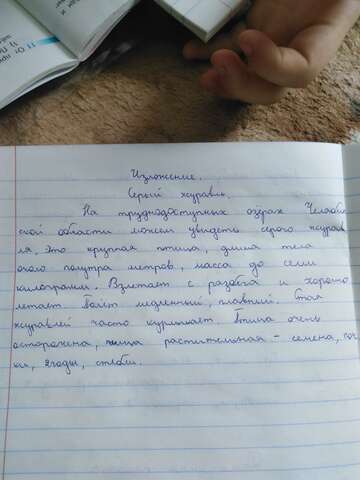 11 От
1) По
Изложение.
Серый журавль.
На труднодоступных озёрах Челяби
ской области можем увидеть серого журав
ля. Это крупная птица, длина тела
около полутра метров, масса до семи
килограмм. Взлетает с разбега и хорошо
летает. Полёт медленный, плавный. Стая
журавлей часто курлыкает. Птица очень
осторожна, пища растительная - семена, поч
ки, ягоды, стебли.